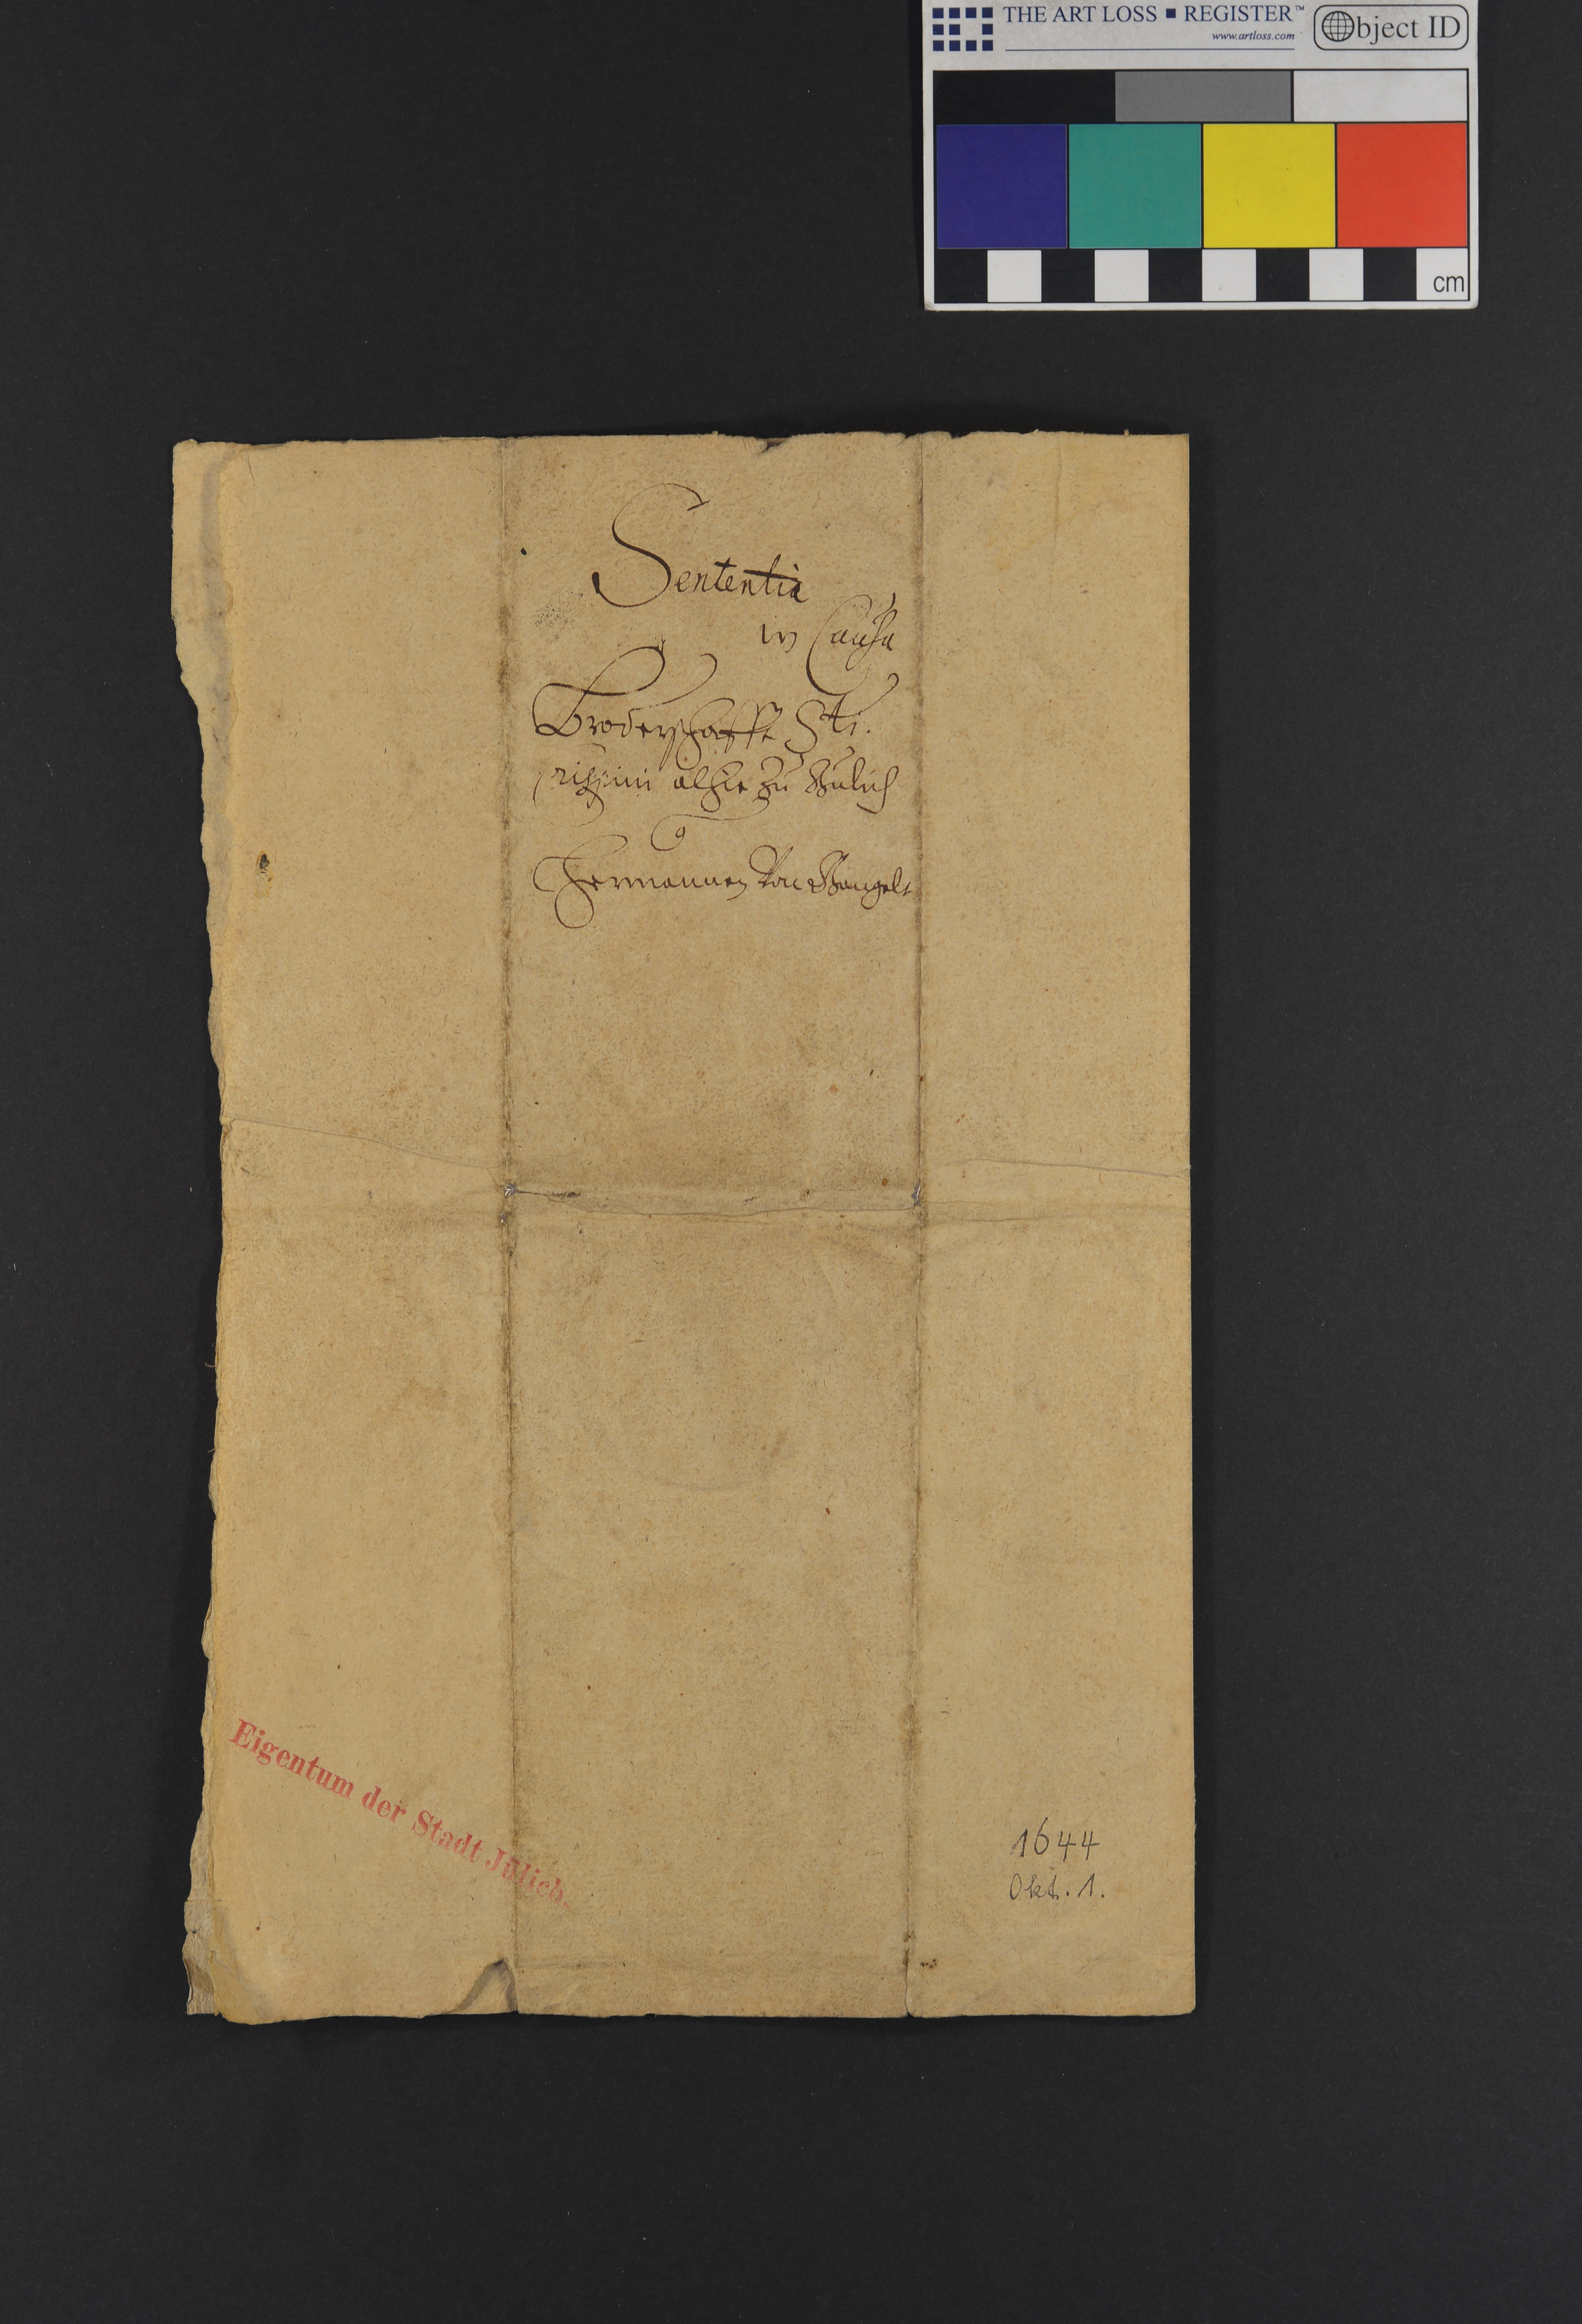 THE ART LOSS ■ REGISTER™
www.artloss.com
Object ID
cm
Sententia
in Causa
Broderschafft Sti.
alhie zu Gulich
Hermannen Von
Eigentum der Stadt Jülich.
1644
Okt. 1.